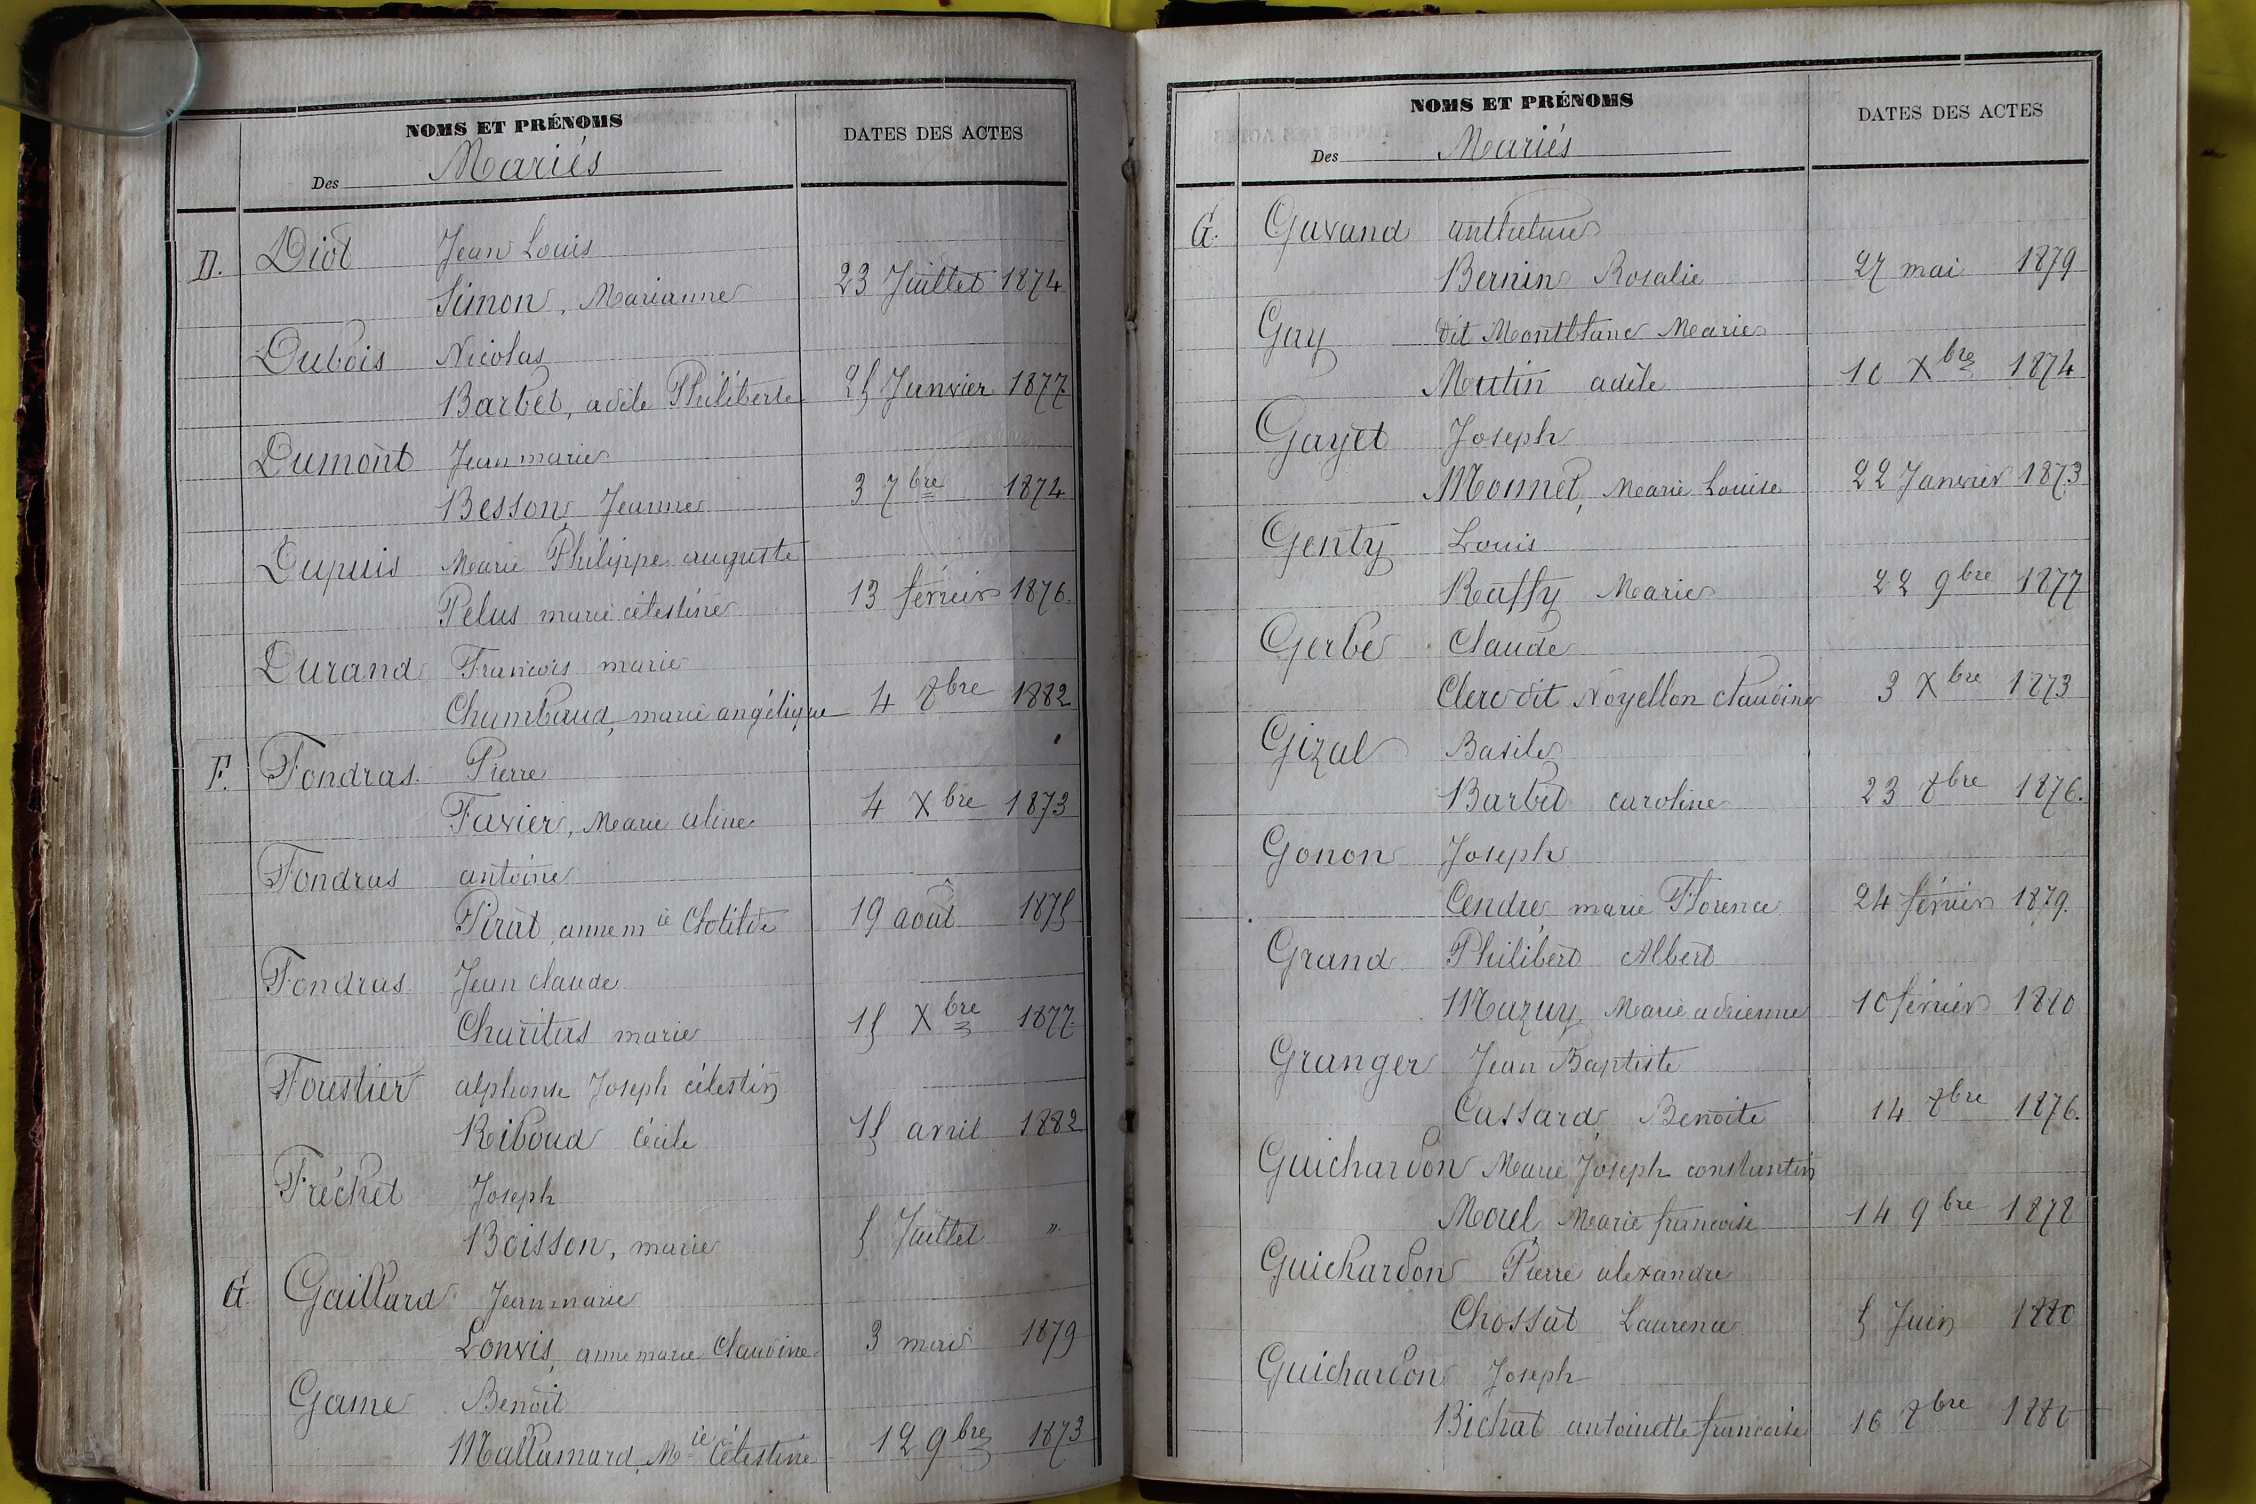 NOMS ET PRÉNOMS
Des Mariés
DATES DES ACTES
D. Diot Jean Louis
Simon, Marianne 23 Juillet 1874
Dubois Nicolas
Barbet, adèle Philiberte 25 Janvier 1877
Dumont Jean marie
Besson, Jeanne 3 7bre 1874
Dupuis Marie Philippe auguste
Pelus marie célestine 13 février 1876.
Durand François marie
Chambaud, marie angélique 4 8bre 1882
F. Fondras. Pierre
Favier, Marie aline 4 Xbre 1873
Fondras antoine
Pirat, anne mie Clotilde 19 août 1875
Fondras Jean claude
Charitas marie 15 Xbre 1877
Forestier alphonse Joseph célestin
Riboud Cécile 15 avril 1882
Fréchet Joseph
Boisson, marie 5 Juillet "
G Gaillard Jean marie
Lonvis, anne marie Claudine 3 mai 1879
Game Benoit
Mallamard, Mie Célestine 12 9bre 1873
NOMS ET PRÉNOMS
Des Mariés
DATES DES ACTES
G. Gavand anthelme
Bernin Rosalie 27 mai 1879
Gay dit Montblanc Marie
Mutin adèle 10 Xbre 1874
Gayet Joseph
Monnet, Marie Louise 22 Janvier 1873
Genty Louis
Raffy Marie 22 9bre 1877
Gerbe Claude
Clerc dit Noyellon claudine 3 Xbre 1873
Gizal Basile
Barbet caroline 23 8bre 1876.
Gonon Joseph
Cendre marie Florence 24 février 1879.
Grand Philibert Albert
Mazuy, Marie adrienne 10 février 1880
Granger Jean Baptiste
Cassard, Benoite 14 8bre 1876.
Guichardon Marie Joseph constantin
Morel, Marie françoise 14 9bre 1878
Guichardon Pierre alexandre
Chossat Laurence 5 Juin 1880
Guichardon Joseph
Bichat antoinette françoise 16 8bre